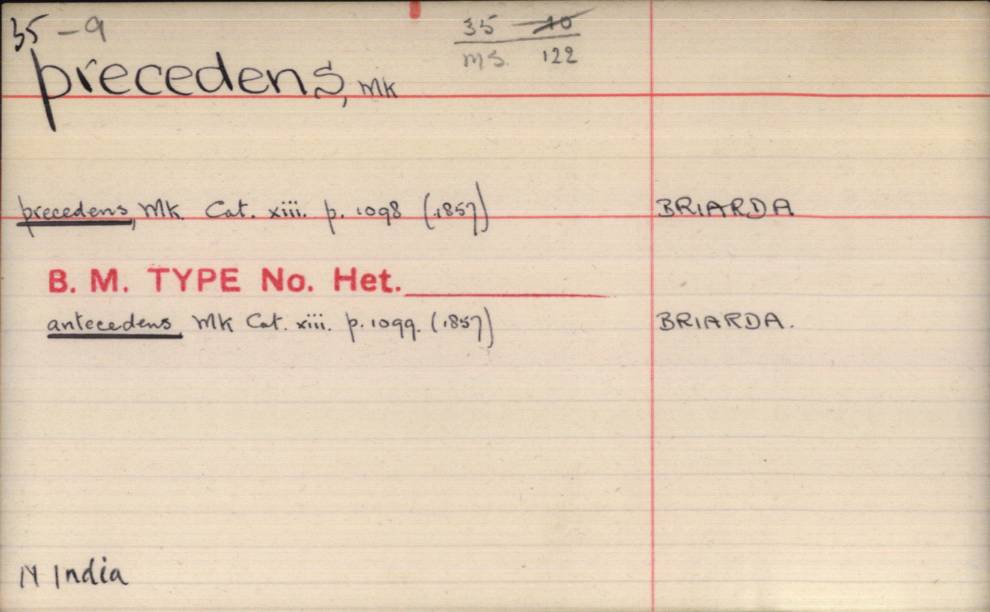 35-9
35 10
ms. 122
precedens, Mk
precedens, Mk. Cat. xiii. p. 1098 (1857) BRIARDA
B. M. TYPE No. Het.
antecedens, Mk Cat. xiii. p. 1099. (1857) BRIARDA.
N India